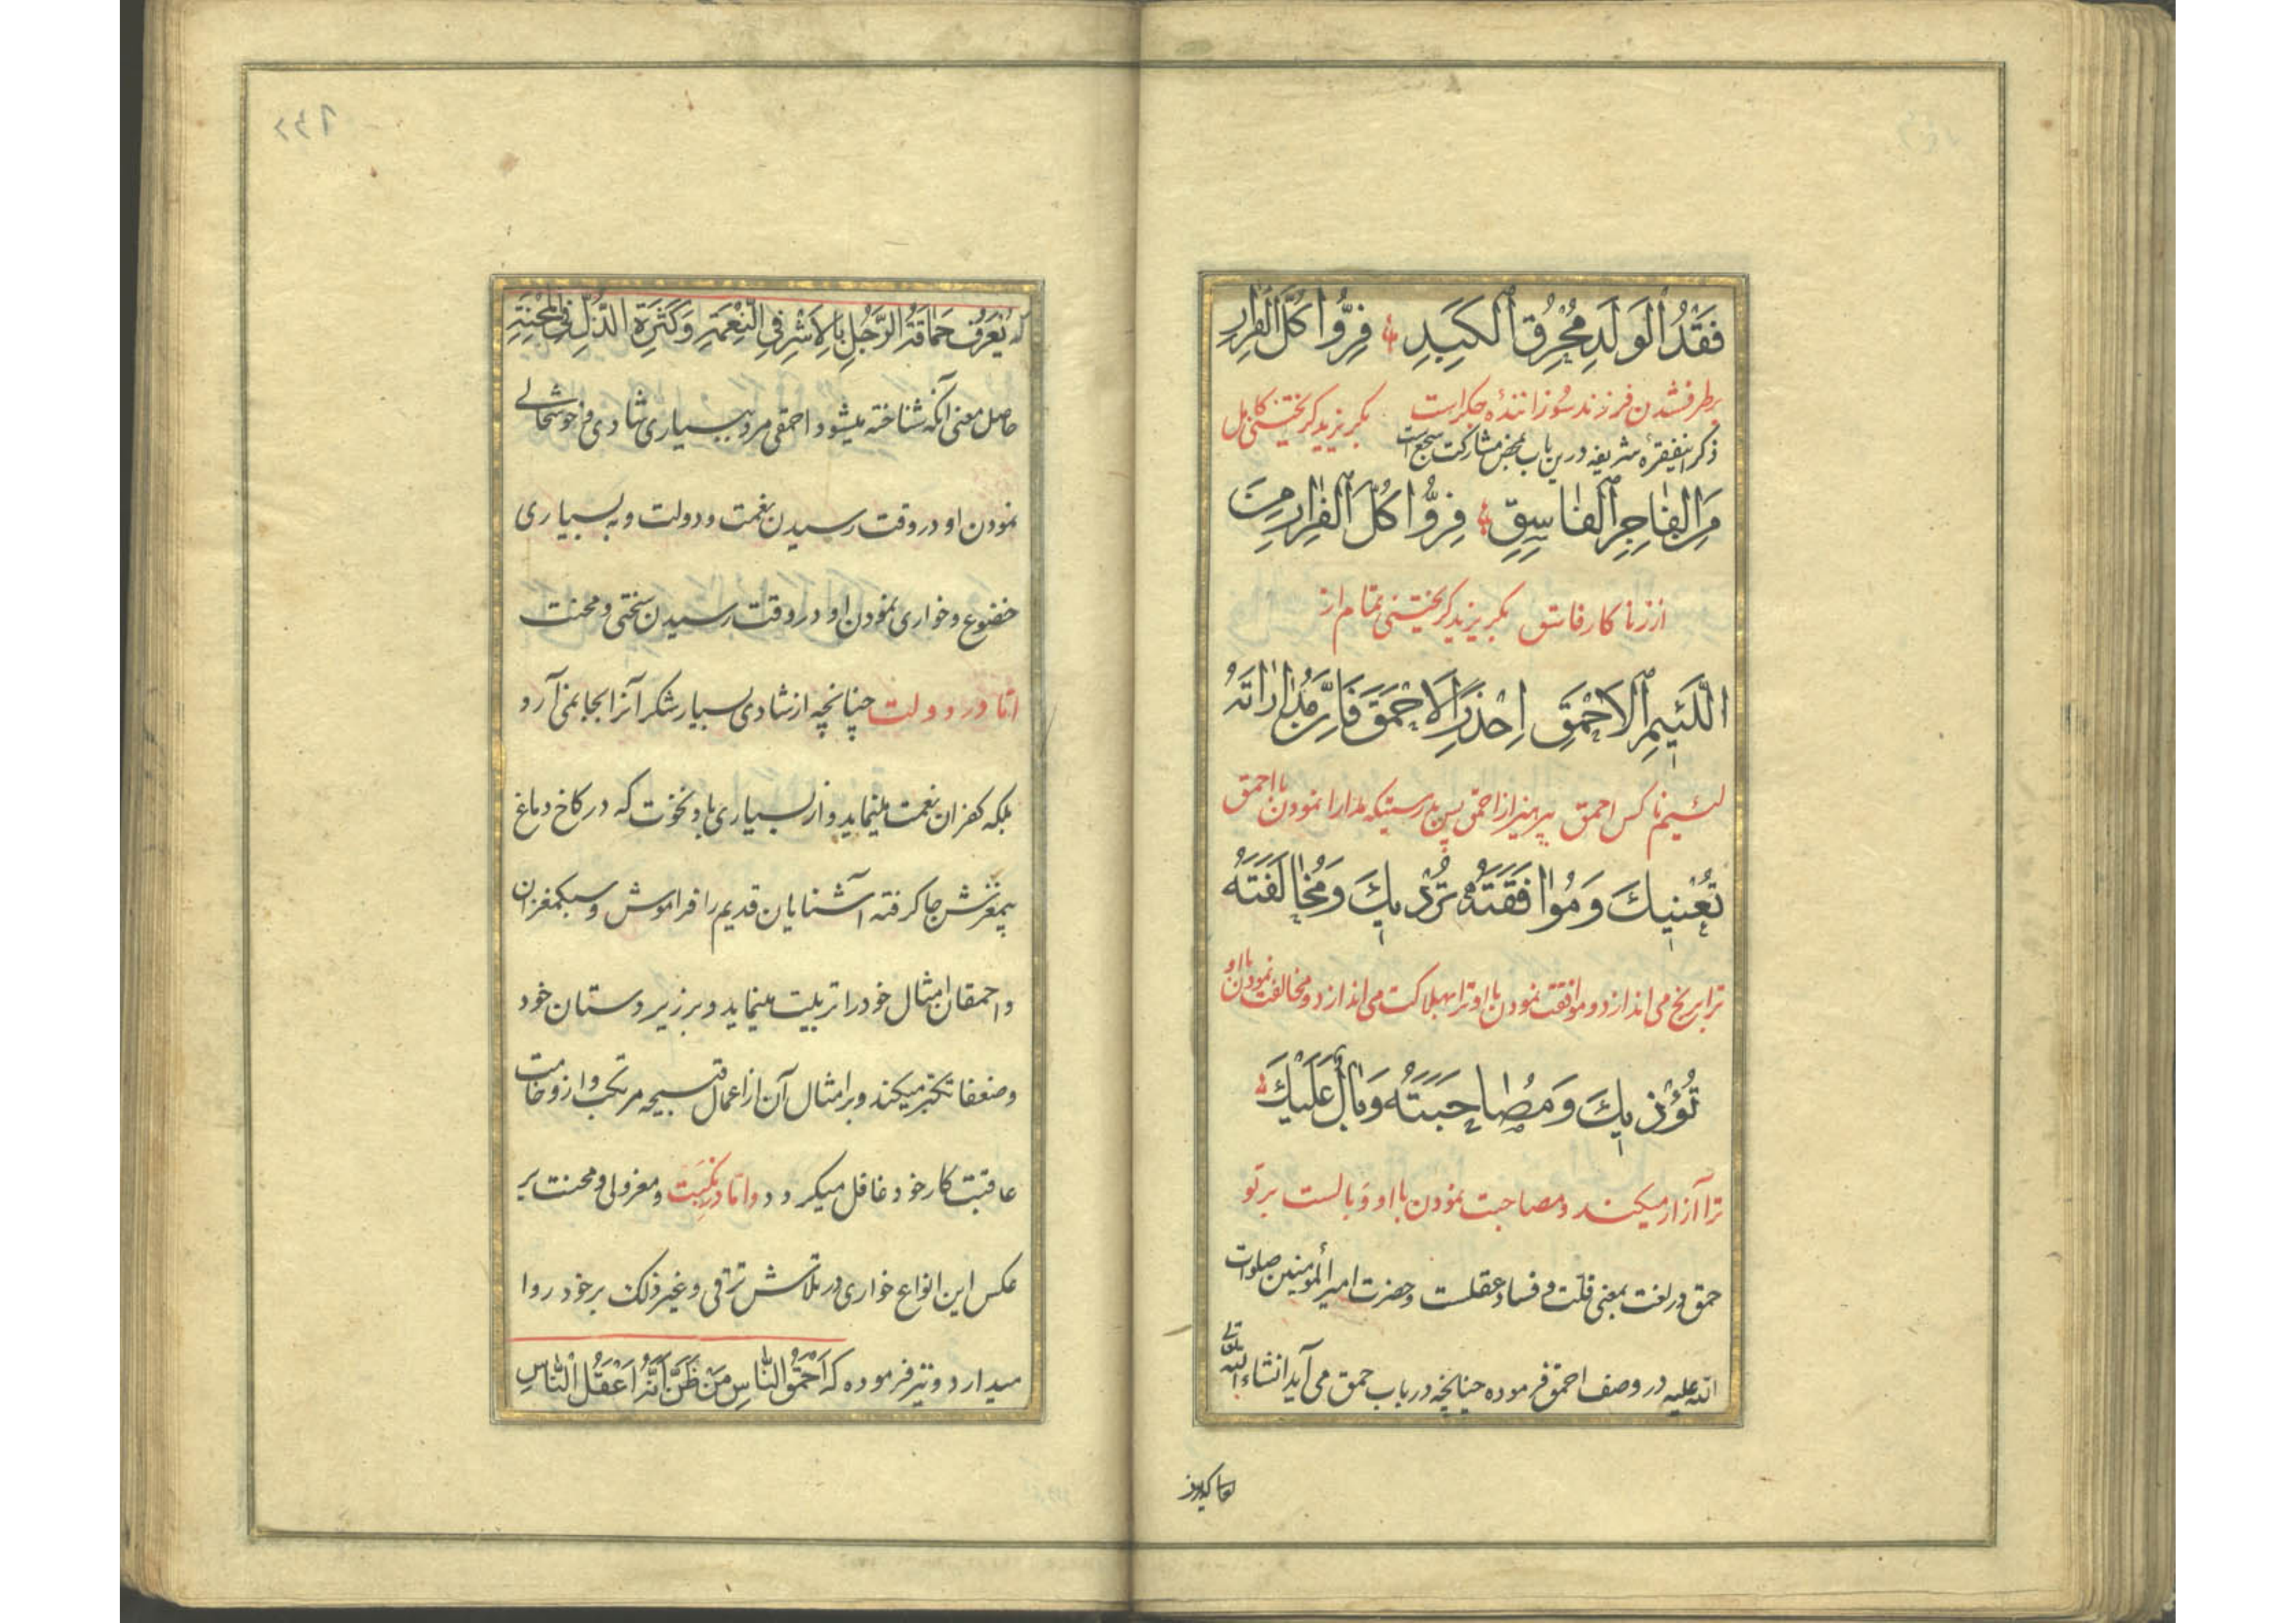 فَقْدُ الْوَلَدِ مُحْرِقُ الْكَبَدِ فِرُّوا كُلَّ الْفِرَارِ
برطرف شدن فرزند سوزاننده جگر است بگریزید گریختنی کامل
ذکر اینفقره شریفه درین باب بمحض مشارکت سجع است
مِنَ الْفَاجِرِ الْفَاسِقِ فِرُّوا كُلَّ الْفِرَارِ مِنَ
از زناکار فاسق بگریزید گریختنی تمام از
اللَّئِيمِ الْاَحْمَقِ اِحْذَرِ الْاَحْمَقَ فَاِنَّ مُدَارَاتَهُ
لئیم ناکس احمق بپرهیز از احمق پس بدرستیکه مدارا نمودن با احمق
تُعْنِيكَ وَ مُوَافَقَتَهُ تُرْدِيكَ وَ مُخَالَفَتَهُ
ترا برنج می اندازد و موافقت نمودن با او ترا بهلاکت می اندازد و مخالفت نمودن با او
تُؤْذِيكَ وَ مُصَاحَبَتَهُ وَبَالٌ عَلَيْكَ
ترا آزار میکند و مصاحبت نمودن با او وبالست بر تو
حمق در لغت بمعنی قلت و فساد عقلست و حضرت امیرالمؤمنین صلوات
الله علیه در وصف احمق فرموده چنانچه در باب حمق می آید انشاء الله تعالی
که یُعْرَفُ حَمَاقَةُ الرَّجُلِ بِالْاَشَرِ فِي النِّعْمَةِ وَ كَثْرَةِ الذُّلِّ فِي الْمِحْنَةِ
حاصل معنی آنکه شناخته میشود احمقی مرد ببسیاری شادی و خوشحالی
نمودن او در وقت رسیدن نعمت و دولت و به بسیاری
خضوع و خواری نمودن او در وقت رسیدن سختی و محنت
اما در دولت چنانچه از شادی بسیار شکر آنرا بجا نمی آرد
بلکه کفران نعمت مینماید و از بسیاری باد نخوت که در کاخ دماغ
بیمغزش جا کرفته آشنایان قدیم را فراموش و سبکمغزان
و احمقان امثال خود را تربیت مینماید و بر زیردستان خود
و ضعفا تکبر میکند و بر امثال آن از اعمال قبیحه مرتکب و از وخامت
عاقبت کار خود غافل میکردد و اما در نکبت و معزولی و محنت بر
عکس این انواع خواری در تلاش ترقی و غیر ذلک بر خود روا
میدارد و نیز فرموده که اَحْمَقُ النَّاسِ مَنْ ظَنَّ اَنَّهُ اَعْقَلُ النَّاسِ